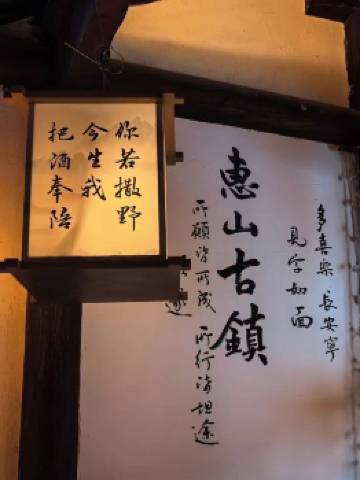 你若撒野
今生我
把酒奉陪
多喜乐 长安宁
见字如面
惠山古镇
所愿皆所成 所行海坦途
途